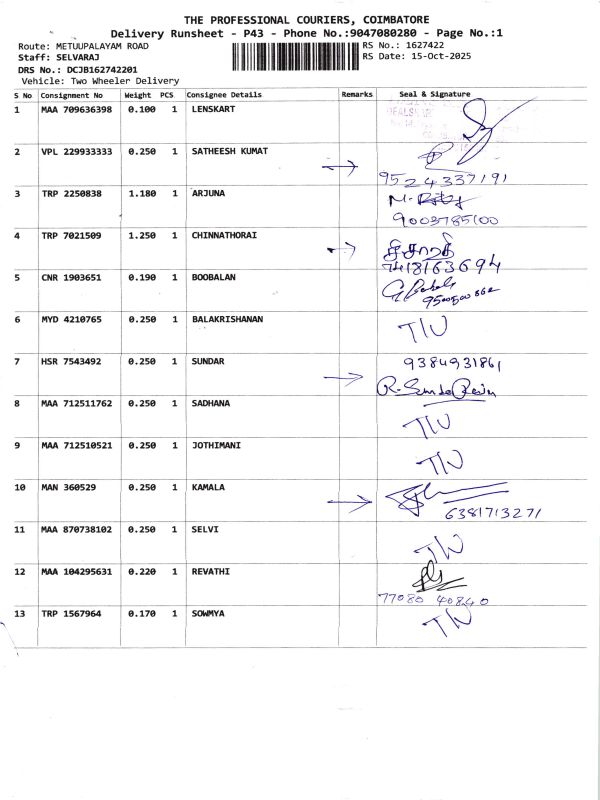 THE PROFESSIONAL COURIERS, COIMBATORE
Delivery Runsheet - P43 - Phone No.:9047080280 - Page No.:1
Route: METUUPALAYAM ROAD RS No.: 1627422
Staff: SELVARAJ RS Date: 15-Oct-2025
DRS No.: DCJB162742201
Vehicle: Two Wheeler Delivery
S No Consignment No Weight PCS Consignee Details Remarks Seal & Signature
1 MAA 709636398 0.100 1 LENSKART
2 VPL 229933333 0.250 1 SATHEESH KUMAT
9524337191
3 TRP 2250838 1.180 1 ARJUNA
9003785100
4 TRP 7021509 1.250 1 CHINNATHORAI
7418163694
5 CNR 1903651 0.190 1 BOOBALAN
6 MYD 4210765 0.250 1 BALAKRISHANAN
7 HSR 7543492 0.250 1 SUNDAR 9384931861
8 MAA 712511762 0.250 1 SADHANA
9 MAA 712510521 0.250 1 JOTHIMANI
10 MAN 360529 0.250 1 KAMALA
6381713271
11 MAA 870738102 0.250 1 SELVI
12 MAA 104295631 0.220 1 REVATHI
77080 40840
13 TRP 1567964 0.170 1 SOWMYA